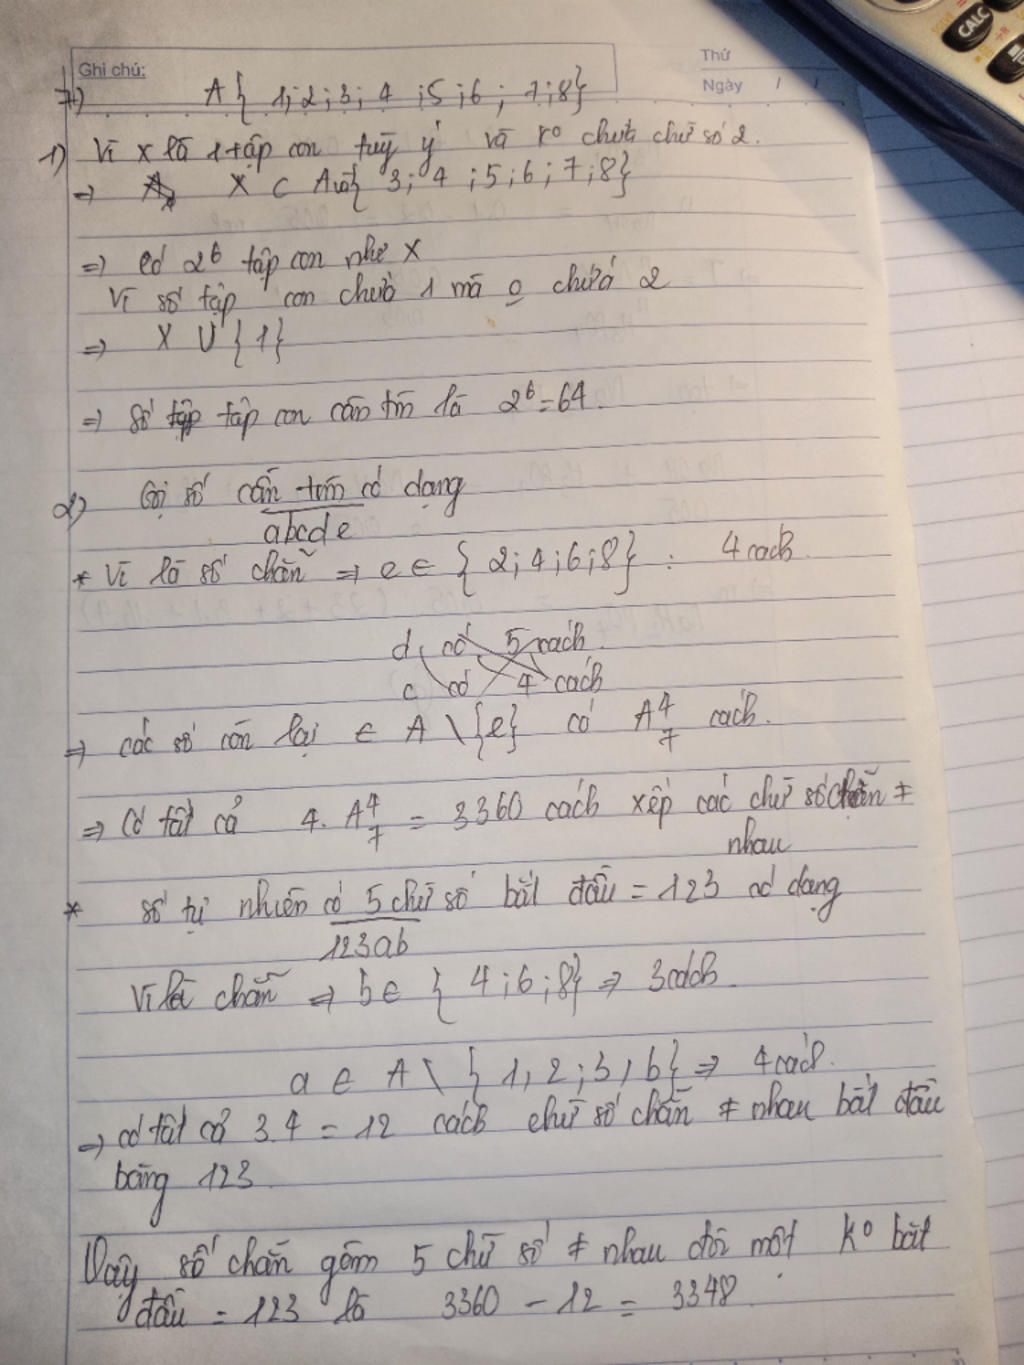 CALC
Ghi chú:
Thứ
Ngày / /
7) A { 1; 2; 3; 4 ; 5 ; 6 ; 7; 8}
1) Vì X là 1 tập con tuỳ ý và k° chứa chữ số 2.
=> X ⊂ { 3; 4 ; 5 ; 6 ; 7 ; 8}
=> có 2^6 tập con như X
Vì số tập con chứa 1 mà o chứa 2
=> X U { 1 }
=> số tập con cần tìm là 2^6 = 64.
2) Gọi số cần tìm có dạng
abcde
* Vì là số chẵn => e ∈ { 2; 4; 6; 8 } : 4 cách.
d có 5 cách.
c có 4 cách
=> các số còn lại ∈ A \ {e} có A^4_7 cách.
=> Có tất cả 4. A^4_7 = 3360 cách xếp các chữ số chẵn ≠
nhau
* số tự nhiên có 5 chữ số bắt đầu = 123 có dạng
123ab
Vì là chẵn => b ∈ { 4 ; 6 ; 8} => 3 cách.
a ∈ A \ { 1, 2 ; 3, b} => 4 cách.
=> có tất cả 3.4 = 12 cách chữ số chẵn ≠ nhau bắt đầu
bằng 123.
Vậy số chẵn gồm 5 chữ số ≠ nhau đôi một k° bắt
đầu = 123 là 3360 - 12 = 3348.